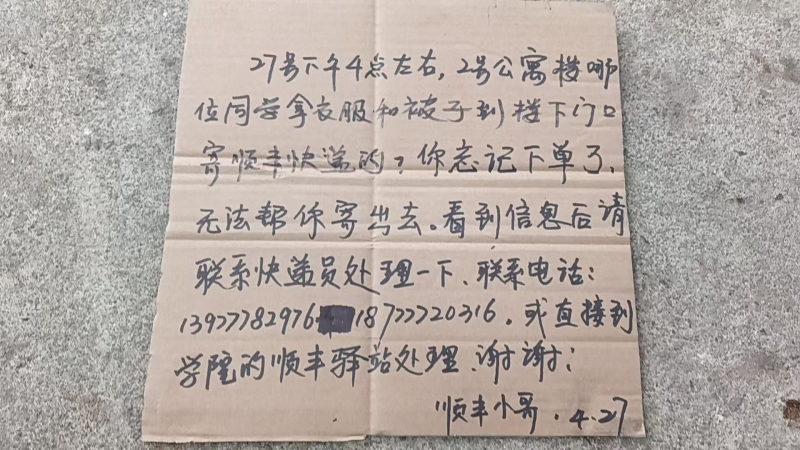 27号下午4点左右,2号公寓楼哪
位同学拿衣服和被子到楼下门口
寄顺丰快递的?你忘记下单了、
无法帮你寄出去。看到信息后请
联系快递员处理一下、联系电话:
13977782976 18777720316。或直接到
学院的顺丰驿站处理、谢谢;
顺丰小哥.4.27